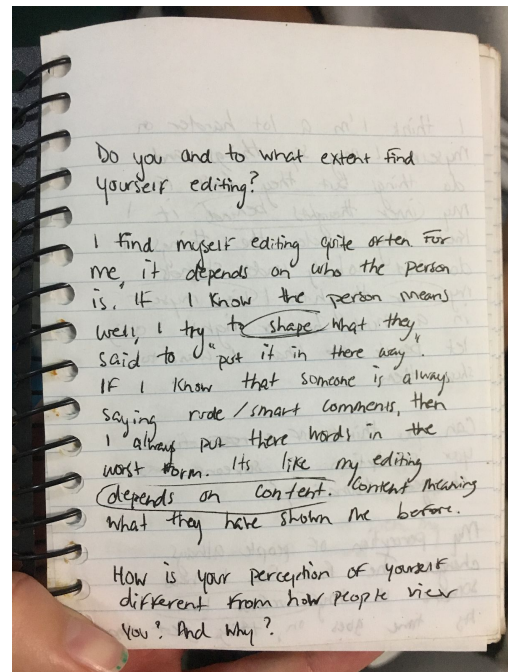 Do you and to what extent find
yourself editing?
I find myself editing quite often For
me it depends on who the person
is. IF I know the person means
well, I try to shape what they
said to "put it in there way".
IF I know that someone is always
saying rude/smart comments, then
I always put there words in the
worst form. Its like my editing
depends on content. Content meaning
what they have shown me before.
How is your perception of yourself
different from how people view
you? And why?